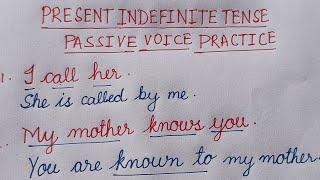 PRESENT INDEFINITE TENSE
PASSIVE VOICE PRACTICE
1. I call her.
She is called by me.
My mother knows you.
You are known to my mother.